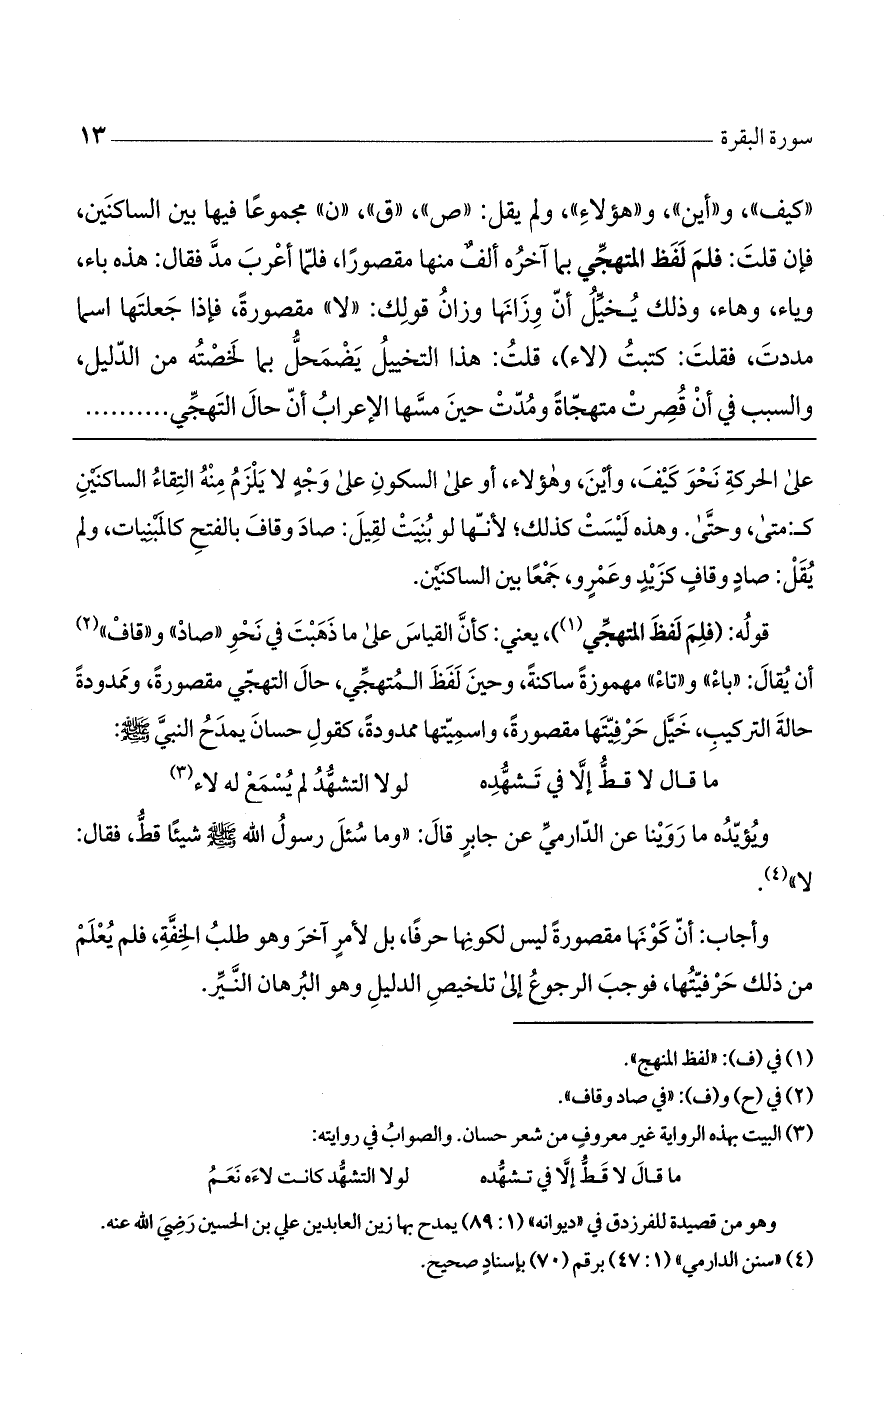 سورة البقرة ١٣
«كيف»، و«أين»، و«هؤلاءِ»، ولم يقل: «ص»، «ق»، «ن» مجموعًا فيها بين الساكنَين،
فإن قلتَ: فلمَ لَفَظ المتهجِّي بما آخرُه ألفٌ منها مقصورًا، فلمّا أعْربَ مدَّ فقال: هذه باء،
وياء، وهاء، وذلك يُخيِّلُ أنّ وِزَانَها وزانُ قولِك: «لا» مقصورةً، فإذا جَعلتَها اسما
مددتَ، فقلتَ: كتبتُ (لاء)، قلتُ: هذا التخييلُ يَضْمَحلُّ بما لَخصْتُه من الدّليل،
والسبب في أنْ قُصِرتْ متهجّاةً ومُدّتْ حينَ مسَّها الإعرابُ أنّ حالَ التَهجِّي..........
علىٰ الحركةِ نَحْوَ كَيْفَ، وأيْنَ، وهٰؤلاء، أو علىٰ السكونِ علىٰ وَجْهٍ لا يَلْزَمُ مِنْهُ التِقاءُ الساكنَيْنِ
كـ:متىٰ، وحتَّىٰ. وهذه لَيْسَتْ كذلك؛ لأنّها لو بُنِيَتْ لقِيلَ: صادَ وقافَ بالفتحِ كالمَبْنِيات، ولم
يُقَلْ: صادٍ وقافٍ كزَيْدٍ وعَمْرٍو، جَمْعًا بين الساكنَيْن.
قولُه: (فلِمَ لَفظَ المتهجِّي(١))، يعني: كأنَّ القياسَ علىٰ ما ذَهَبْتَ في نَحْوِ «صادْ» و«قافْ»(٢)
أن يُقالَ: «باءْ» و«تاءْ» مهموزةً ساكنةً، وحينَ لَفَظَ المُتهجِّي، حالَ التهجّي مقصورةً، وممدودةً
حالةَ التركيبِ، خَيَّل حَرْفِيّتَها مقصورةً، واسمِيّتها ممدودةً، كقولِ حسانَ يمدَحُ النبيَّ ﷺ:
ما قـال لا قـطُّ إلَّا في تَـشهُّدِه لو لا التشهُّدُ لم يُسْمَعْ له لاء(٣)
ويُؤيّدُه ما رَوَيْنا عن الدّارميِّ عن جابرٍ قالَ: «وما سُئلَ رسولُ الله ﷺ شيئًا قطُّ، فقال:
لا»(٤).
وأجاب: أنّ كَوْنَها مقصورةً ليس لكونِها حرفًا، بل لأمرٍ آخرَ وهو طلبُ الخِفَّةِ، فلم يُعْلَمْ
من ذلك حَرْفيّتُها، فوجبَ الرجوعُ إلىٰ تلخيصِ الدليلِ وهو البُرهان النَّـيِّر.
(١) في (ف): «لفظ المنهج».
(٢) في (ح) و(ف): «في صاد وقاف».
(٣) البيت بهذه الرواية غير معروفٍ من شعر حسان. والصوابُ في روايته:
ما قـالَ لا قَـطُّ إلَّا في تـشهُّده لو لا التشهُّد كانـت لاءَه نَعَـمُ
وهو من قصيدة للفرزدق في «ديوانه» (١: ٨٩) يمدح بها زين العابدين علي بن الحسين رَضِيَ الله عنه.
(٤) «سنن الدارمي» (١: ٤٧) برقم (٧٠) بإسنادٍ صحيح.